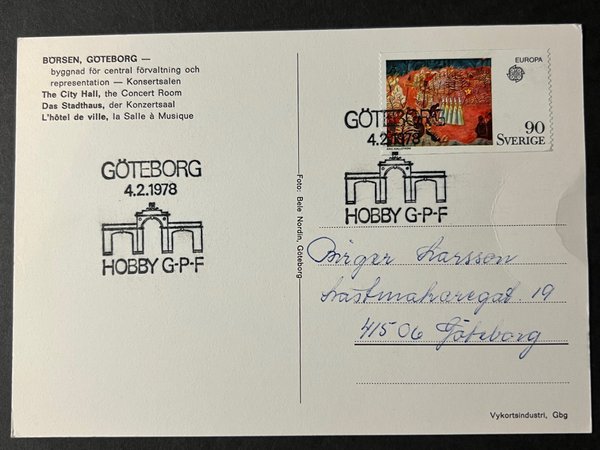 BÖRSEN, GÖTEBORG —
byggnad för central förvaltning och
representation — Konsertsalen
The City Hall, the Concert Room
Das Stadthaus, der Konzertsaal
L'hôtel de ville, la Salle à Musique
GÖTEBORG
4.2.1978
HOBBY G-P-F
Foto: Bele Nordin, Göteborg
EUROPA
90
SVERIGE
GÖTEBORG
4.2.1978
HOBBY G-P-F
Birger Larsson
19
415 06 Göteborg
Vykortsindustri, Gbg